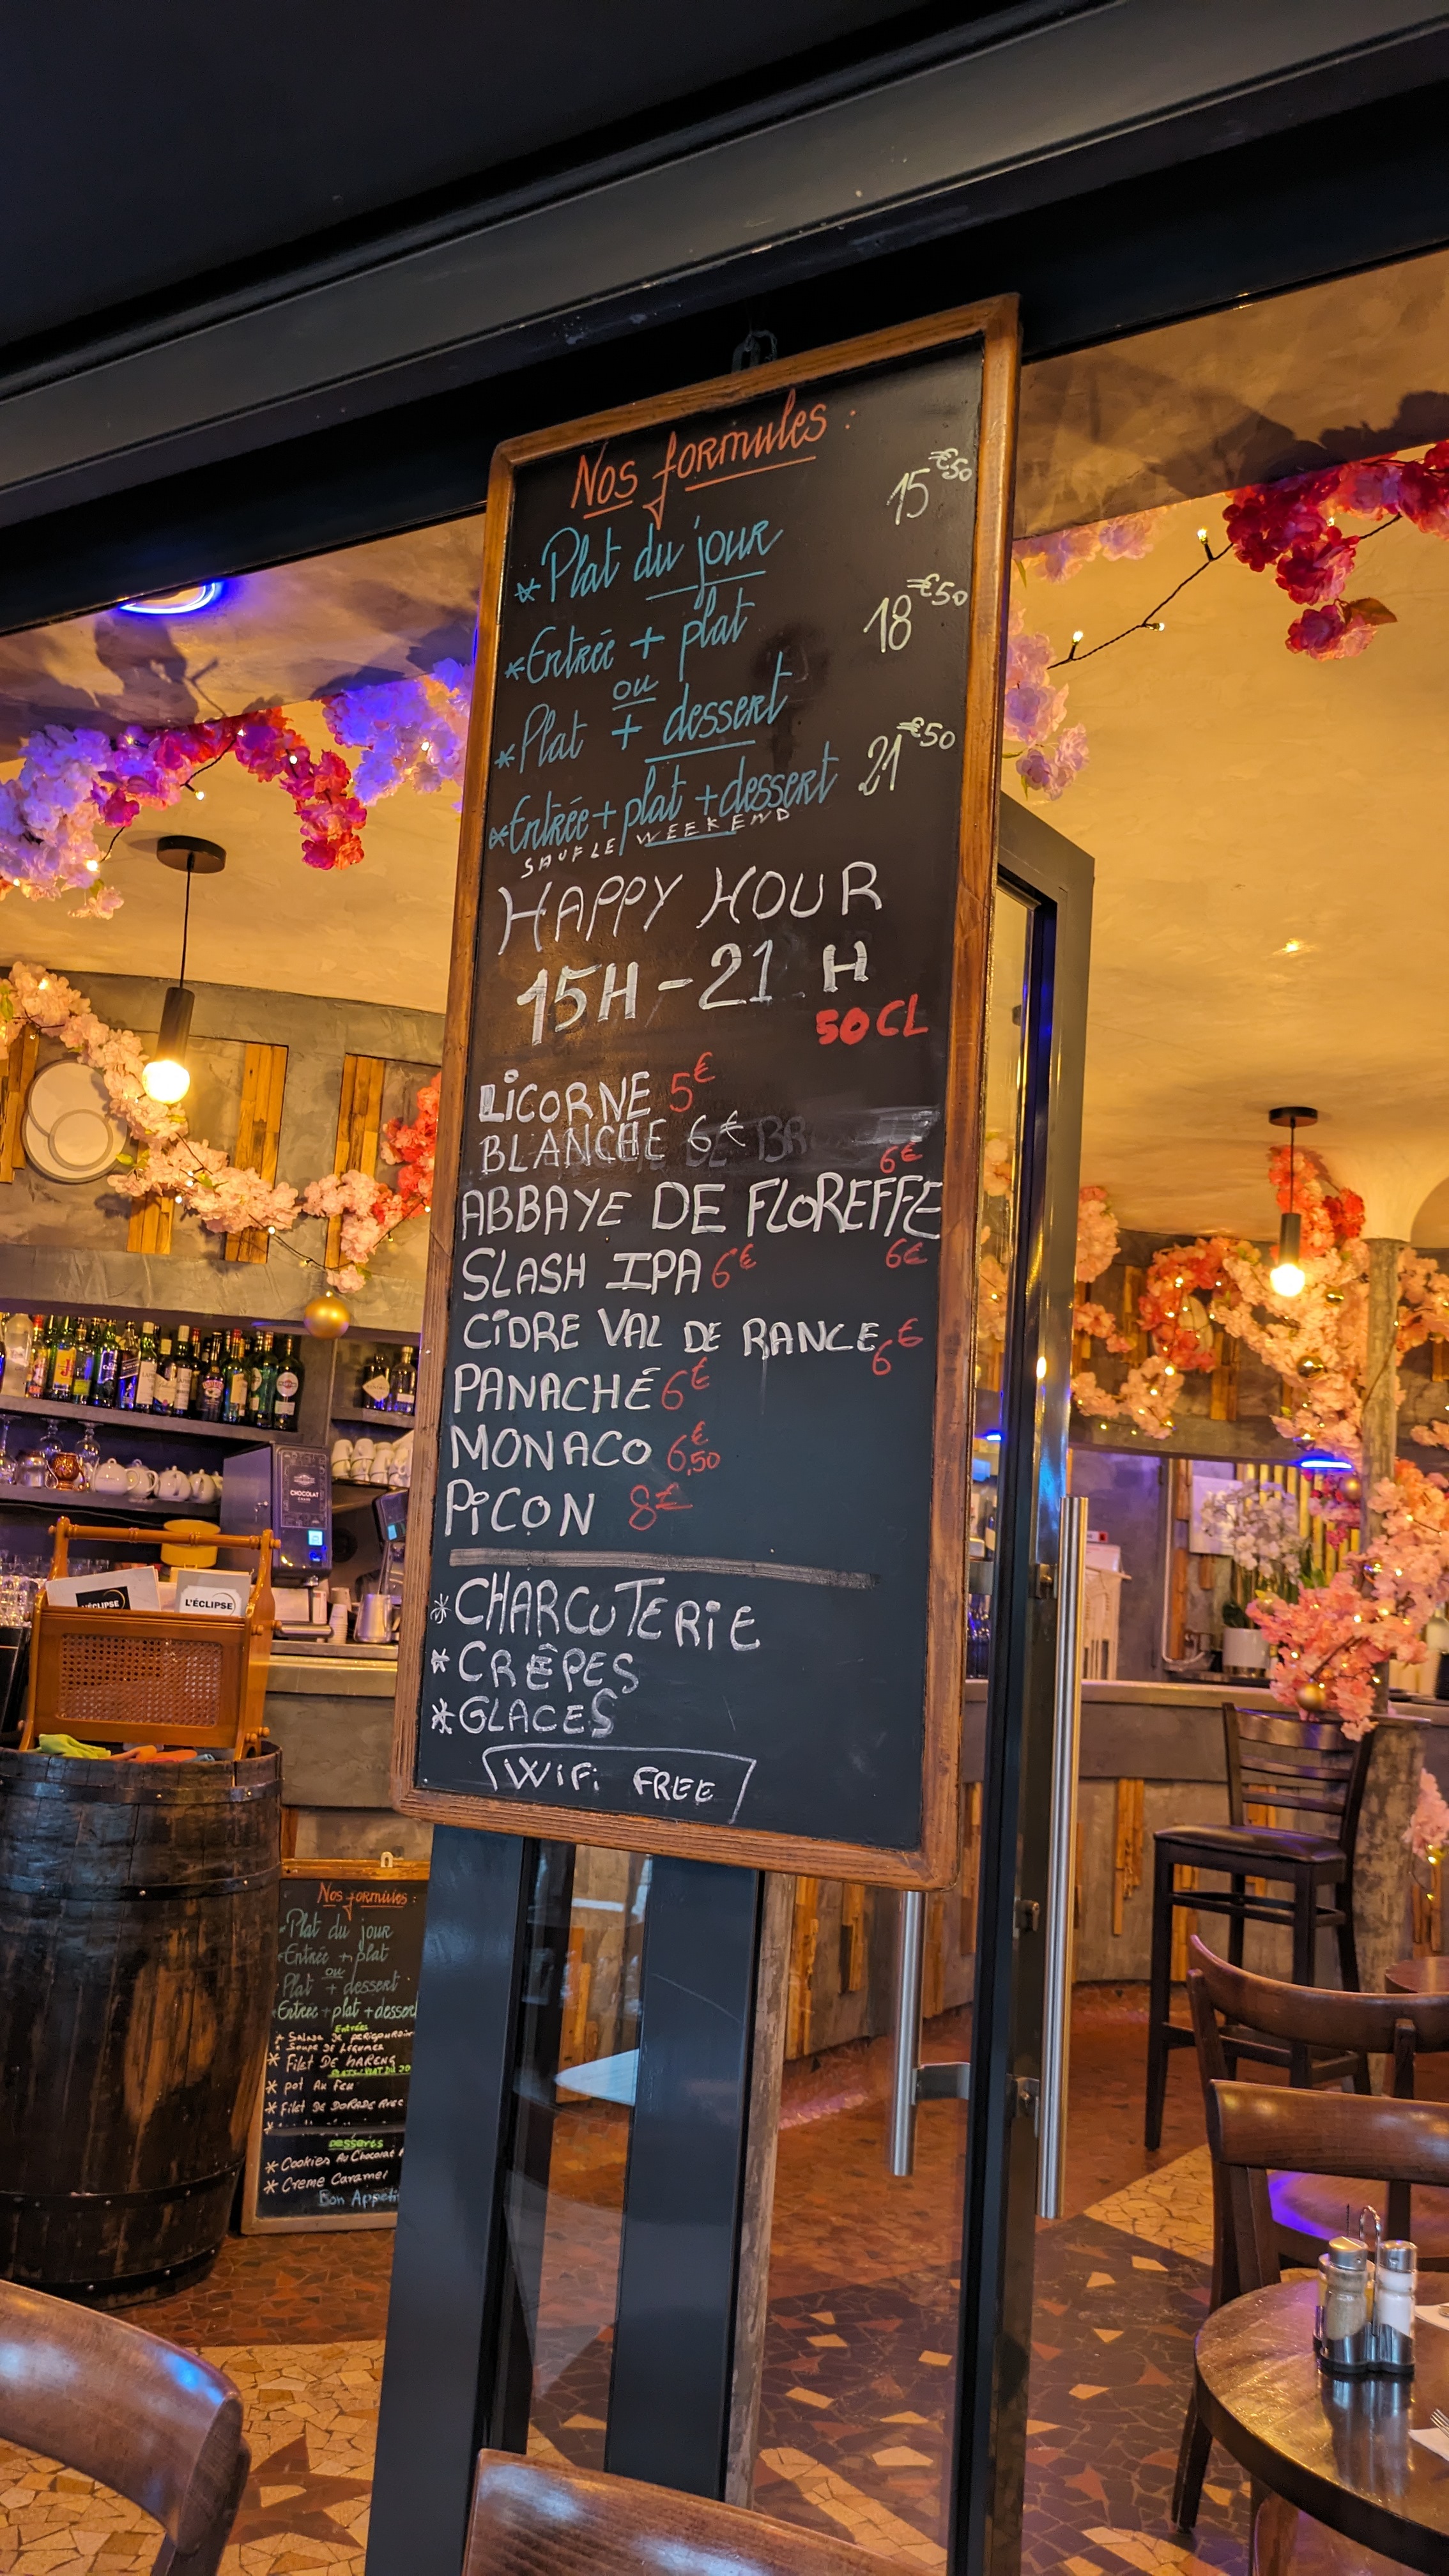 Nos formules :
* Plat du jour 15€50
* Entrée + plat 18€50
ou
* Plat + dessert
* Entrée + plat + dessert 21€50
SAUFLE WEEKEND
HAPPY HOUR
15H - 21 H
50CL
LICORNE 5€
BLANCHE 6€
6€
ABBAYE DE FLOREFFE
SLASH IPA 6€ 6€
CIDRE VAL DE RANCE 6€
PANACHÉ 6€
MONACO 6,50€
PICON 8€
* CHARCUTERIE
* CRÊPES
* GLACES
WIFI FREE
CHOCOLAT
L'ÉCLIPSE
L'ÉCLIPSE
Nos formules :
Plat du jour
Entrée + plat
ou
Plat + dessert
Entrée + plat + dessert
Entrées
* Salade de
* Soupe de Légumes
* Filet DE HARENG
* pot Au feu
* Filet DE DORADE AVEC
Desserts
* Cookies Au Chocolat
* Creme Caramel
Bon Appetit